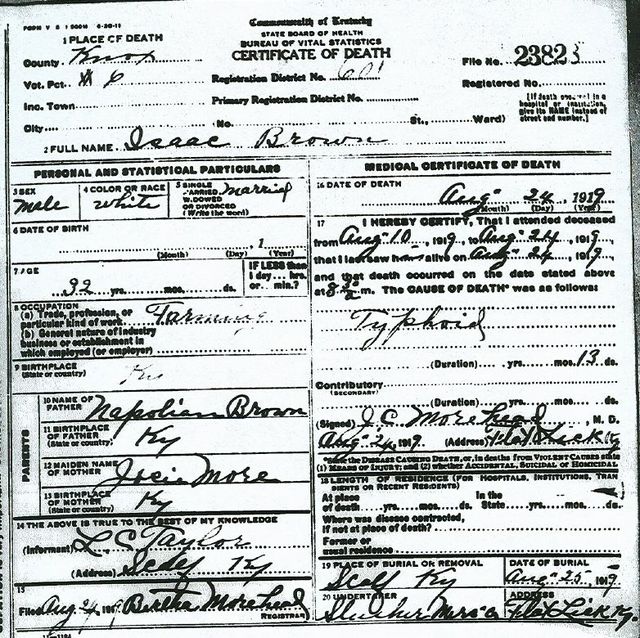 Commonwealth of Kentucky
STATE BOARD OF HEALTH
BUREAU OF VITAL STATISTICS
CERTIFICATE OF DEATH
1 PLACE OF DEATH
County Knox
Vot. Pct. # 6
Inc. Town
City No. St., Ward)
Registration District No. 601
Primary Registration District No.
File No. 23823
Registered No.
[If death occurred in a hospital or institution, give its NAME instead of street and number.]
2 FULL NAME Isaac Brown
PERSONAL AND STATISTICAL PARTICULARS
3 SEX male
4 COLOR OR RACE white
5 SINGLE MARRIED WIDOWED OR DIVORCED (Write the word) Married
6 DATE OF BIRTH
(Month) (Day) , 1 (Year)
7 AGE
32 yrs. mos. ds.
IF LESS than 1 day... hrs. or... min.?
8 OCCUPATION
(a) Trade, profession, or particular kind of work Farming
(b) General nature of industry business or establishment in which employed (or employer)
9 BIRTHPLACE (State or country) Ky
PARENTS
10 NAME OF FATHER Napolian Brown
11 BIRTHPLACE OF FATHER (State or country) Ky
12 MAIDEN NAME OF MOTHER Josie More
13 BIRTHPLACE OF MOTHER (State or country) Ky
14 THE ABOVE IS TRUE TO THE BEST OF MY KNOWLEDGE
(Informant) L C Taylor
(Address) Ky
15
Filed Aug 24 1919 Bertha Morehead
REGISTRAR
MEDICAL CERTIFICATE OF DEATH
16 DATE OF DEATH
Aug 24, 1919
(Month) (Day) (Year)
17 I HEREBY CERTIFY, That I attended deceased
from Aug 10, 1919, to Aug 24, 1919,
that I last saw him alive on Aug 24, 1919,
and that death occurred on the date stated above
at m. The CAUSE OF DEATH* was as follows:
Typhoid
(Duration) yrs. mos. 13 ds.
Contributory
(SECONDARY)
(Duration) yrs. mos. ds.
(Signed) J C Morehead, M. D.
Aug 24 1919 (Address) Flat Lick Ky
*State the DISEASE CAUSING DEATH, or, in deaths from VIOLENT CAUSES state
(1) MEANS OF INJURY; and (2) whether ACCIDENTAL, SUICIDAL OR HOMICIDAL
18 LENGTH OF RESIDENCE (FOR HOSPITALS, INSTITUTIONS, TRANSIENTS OR RECENT RESIDENTS)
At place of death yrs. mos. ds. In the State yrs. mos. ds.
Where was disease contracted, if not at place of death?
Former or usual residence
19 PLACE OF BURIAL OR REMOVAL Scalf Ky
DATE OF BURIAL Aug 25, 1919
20 UNDERTAKER
ADDRESS Flat Lick Ky